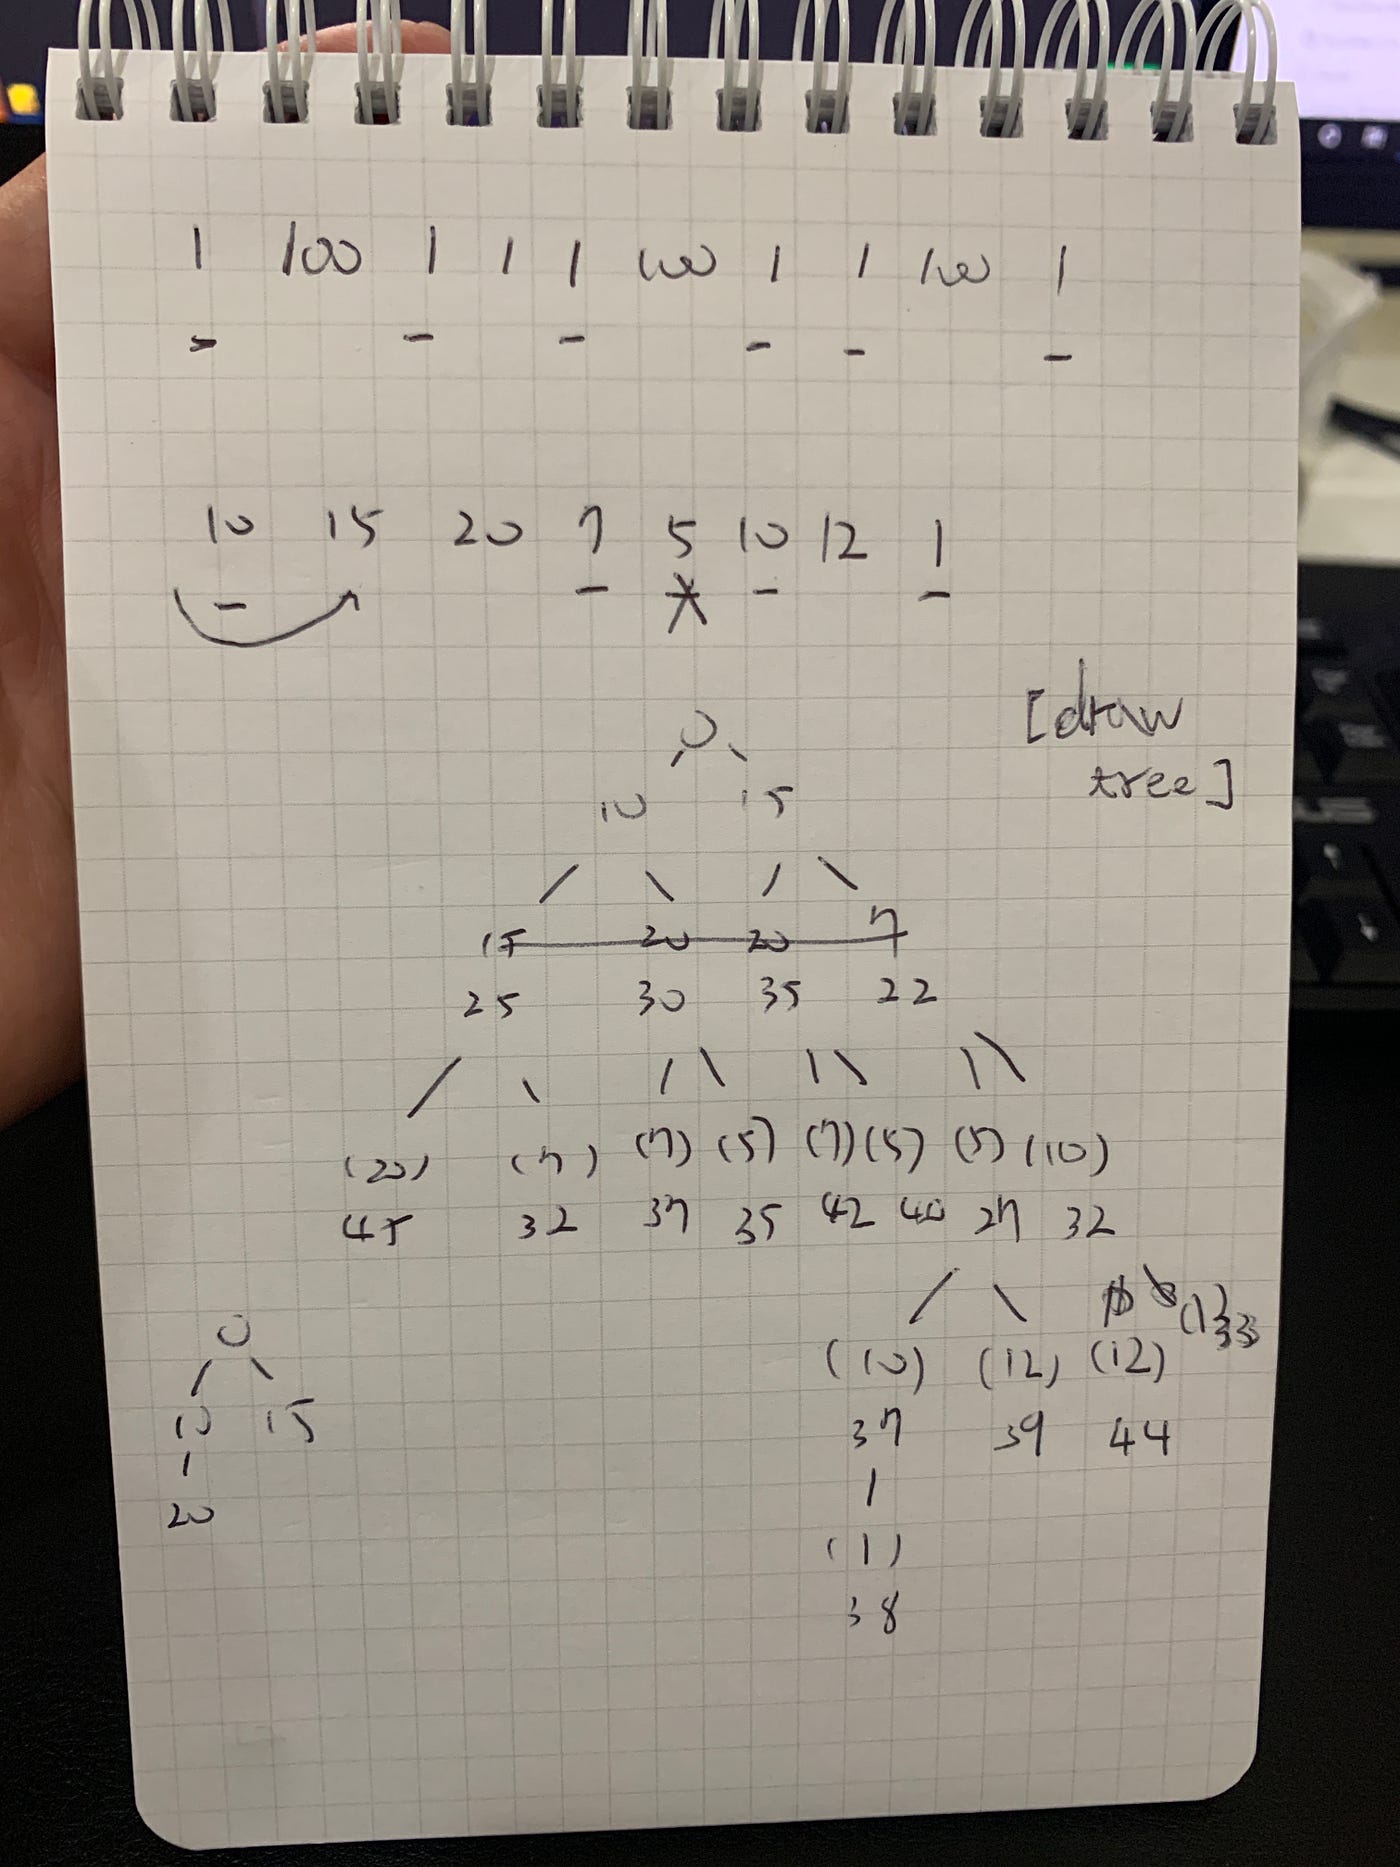 1 100 1 1 1 100 1 1 100 1
10 15 20 7 5 10 12 1
[draw
tree]
0
10 15
15 20 20 7
25 30 35 22
(20) (7) (7) (5) (7) (5) (5) (10)
45 32 37 35 42 40 27 32
(10) (12) (12) (1) 33
37 39 44
1
(1)
38
0
10 15
1
20